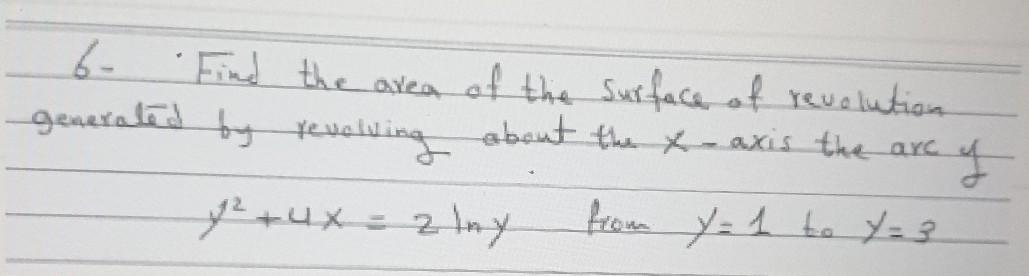 6- Find the area of the surface of revolution
generated by revolving about the x-axis the arc of
y² + 4x = 2 ln y from y = 1 to y = 3